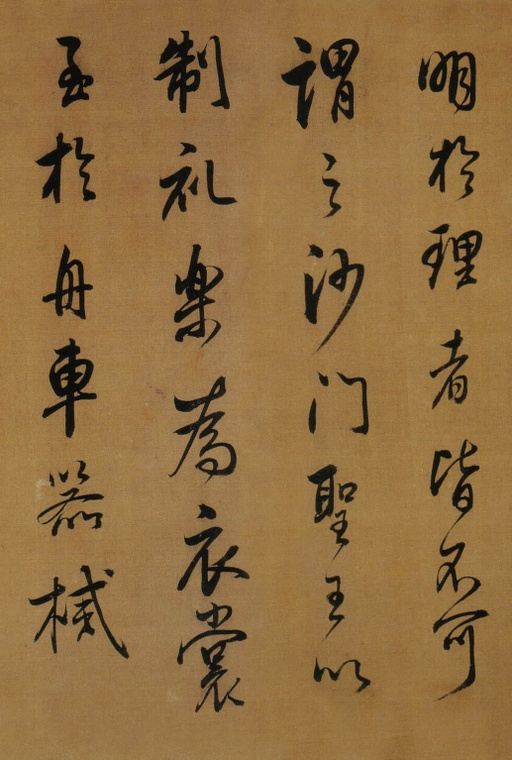 明於理者皆不可
謂之沙門聖王以
制礼樂為衣裳
至於舟車器械